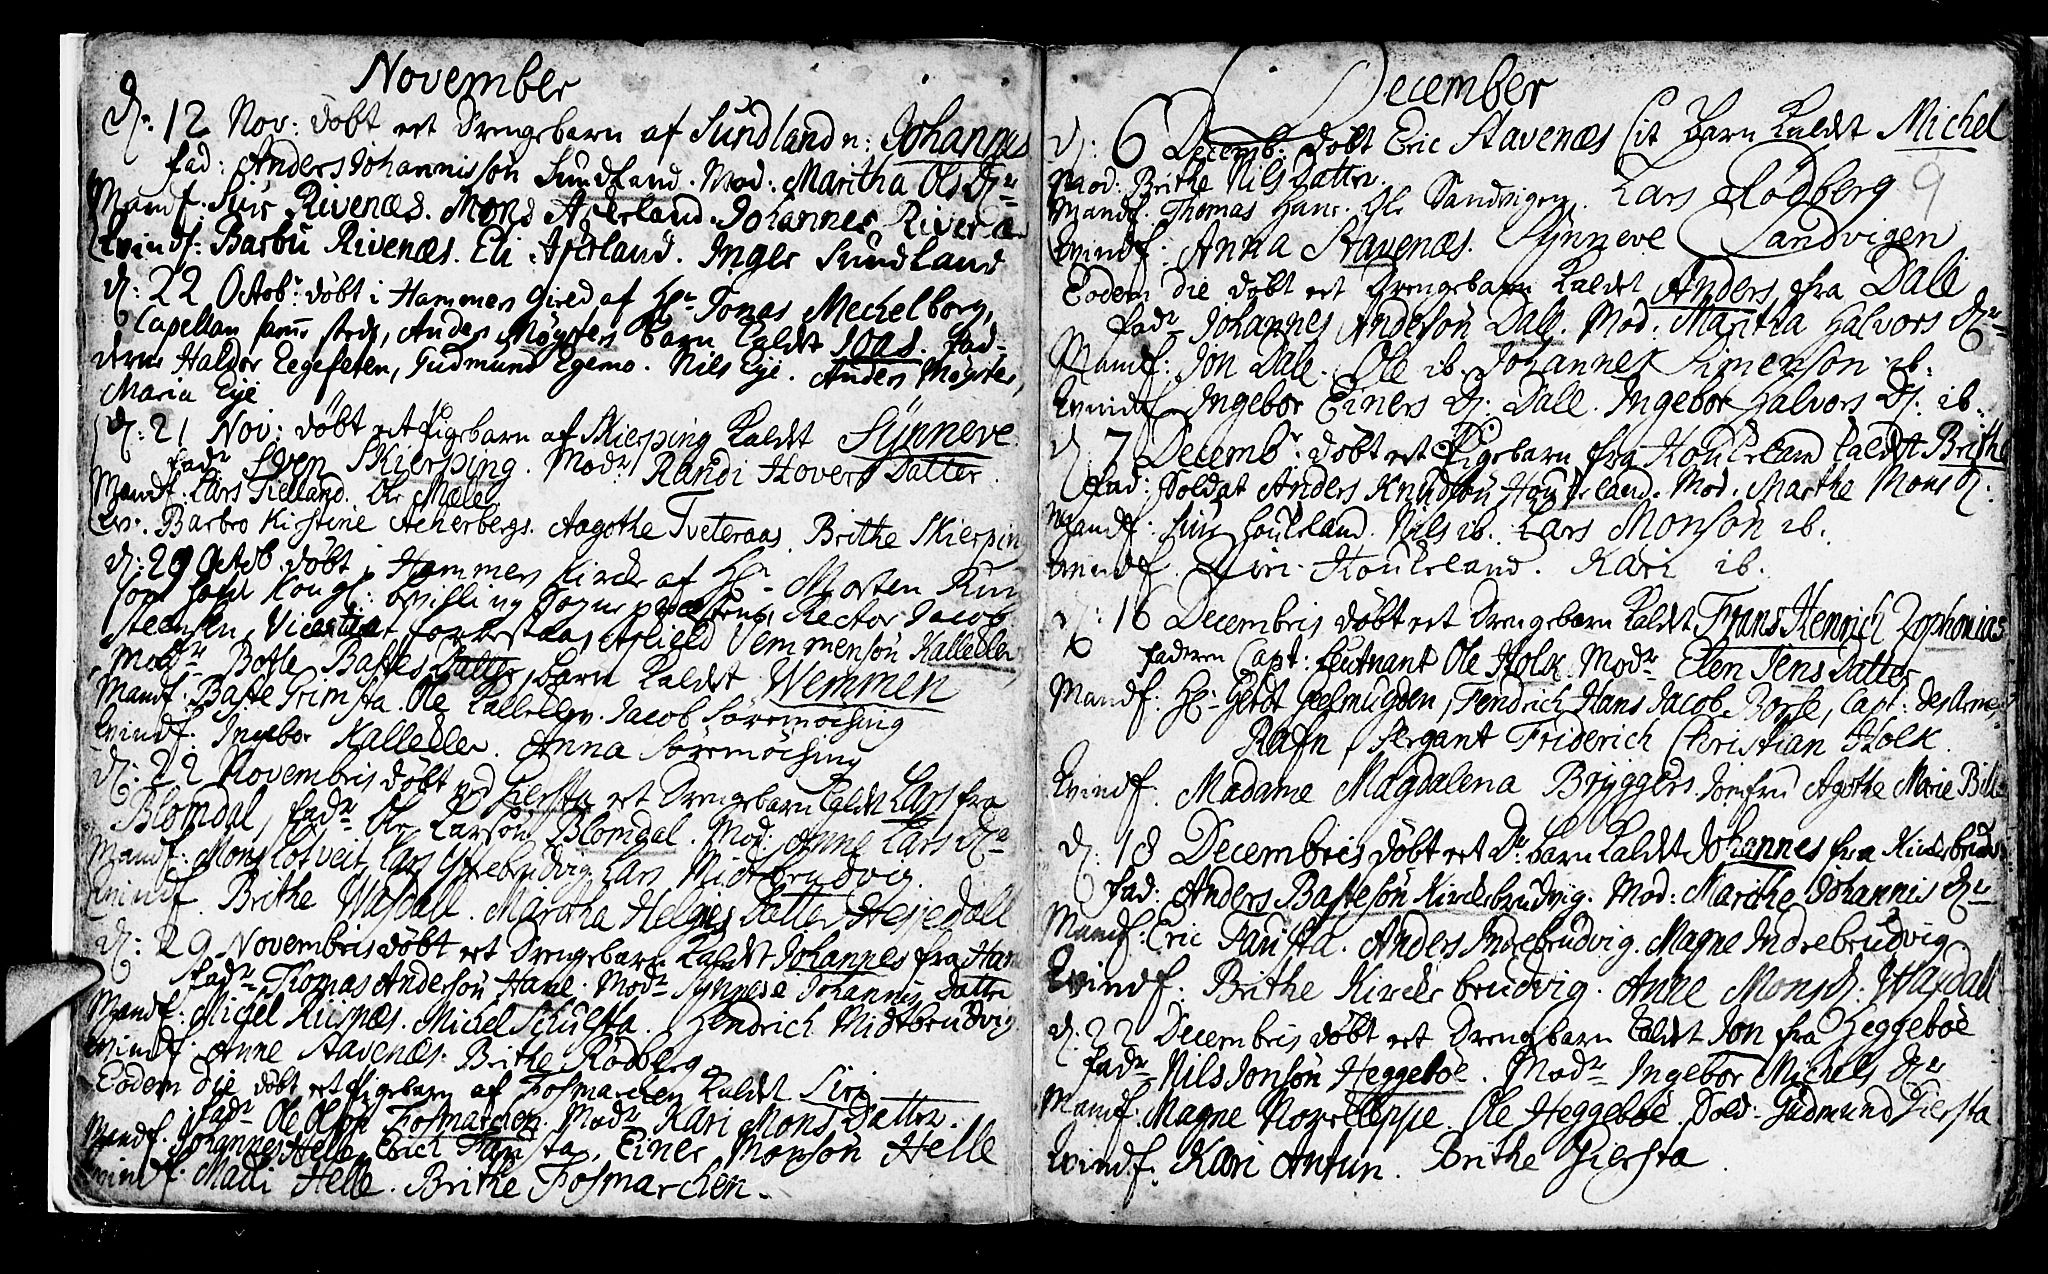 November
d: 12 Nov: døbt et Drengebarn af Sundland n: Johannes
Fad: Anders Johannissøn Sundland. Mod: Maritha Ols Dr
Mandf: Siur Rivenæs. Mons Aaerland. Johannes Rivenæ
Qvindf: Barbu Rivenæs. Eli Aaerland. Inger Sundland
d: 22 Octobr: døbt i Hammers Gield af Hr Jonas Mechelborg,
Capellan samme steds, Anders Møgsters Barn kaldt Joas. Fad-
derne Haldor Eegeseten, Gudmund Egemo. Nils Eije. Anders Møgster,
Maria Eije
d: 21 Nov: døbt et Pigebarn af Skierping kaldt Synneve
Fadr Sven Skierping. Modr Randi Hovers Datter.
Mandf: Lars Tielland. Ole Mæle
Qv. Barbro Kirstine Acherbergs. Aagothe Tveteraas. Brithe Skierping
d: 29 Octob. døbt i Hammers Kirche af Hr Morten
som havde Kongl: Sogne præstens, Rector Jacob
Steensen, Vicariat forrestaa, Vemmensøn Kalleklev
Modr Botle Bastes Datter, barn kaldt Wemmen
Mandf: Baste Grimsta. Ole Kalleklev. Jacob Søremøising
Qvindf. Ingebor Kalleklev. Anna Søremøising
d: 22 Novembris døbt ved Giersta et Drengebarn kaldt Lars fra
Blomdal, Fadr Ole Larsøn Blomdal. Mod: Anne Lars Dr
Mandf: Mons Lotveit, Lars Yttebrudvig Lars Midtbrudvig.
Qvindf. Brithe Wasdall. Maritha Helges Datter Hejedall
d: 29 Novembris døbt et Drengebarn kaldt Johannes fra Han
Fadr Thomas Andersøn Hane. Modr Synneve Johannis Datter
Mandf. Michel Riisnæs. Michel Schulsta. Hendrich Midtbrudvig
Qvindf: Anne Stavenæs. Brithe Rødberg.
Eodem Die døbt et Pigebarn af Fosmarchen kaldt Siri
Fadr Ole Olsøn Fosmarchen. Modr Kari Mons Datter.
Mandf. Johannes Helle, Erich Farista, Einer Monsøn Helle
Qvindf. Madi Helle. Brithe Fosmarchen.
December
9
d: 6 Decemb: døbt Eric Stavenæs sit Barn kaldt Michel
Mod: Brithe Nils Datter.
Mandf. Thomas Hane. Ole Sandvigen. Lars Rødberg
Qvindf: Anna Stavenæs. Synneve Sandvigen
Eodem die døbt et Drengebarn kaldt Anders fra Dale
Fadr Johannes Andersøn Dall. Mod. Maritha Halvors Dr
Mandf: Jon Dall. Ole ib. Johannes Simensøn ib.
Qvindf. Ingebor Einers D: Dall. Ingebor Halvors D. ib.
d: 7 Decembr: døbt et Pigebarn fra Houkeland kaldt Brithe
Fad: Soldat Anders Knudsøn Houkeland. Mod. Marthe Mons D:
Mandf: Siur Houkeland. Nils ib. Lars Monsøn ib.
Qvindf. Siri Houkeland. Kari ib.
d: 16 Decembris døbt et Drengebarn kaldt Frans Henrich Zophonias
Faderen Capt: Leutnant Ole Holk. Modr Elen Jens Datter
Mandf: Hr Gerdt Geelmuyden, Fendrich Hans Jacob Borse, Capt: des Arme
Rafn, Sergant Friderich Christian Holk.
Qvindf. Madame Magdalena Bryggers. Jomfru Agothe Marie Bille
d: 18 Decembris døbt et Dr: Barn kaldt Johannes fra Kirkebrudv
Fad: Anders Bastesøn Kirkebrudvig. Mod: Marithe Johannis Dr
Mandf: Eric Farista. Anders Indrebrudvig. Magne Indrebrudvig
Qvindf: Brithe Kirkebrudvig. Anne Mons D. Wasdall
d: 22 Decembris døbt et Drengebarn kaldt Jon fra Heggebøe
Fadr Nils Jonsøn Heggebøe. Modr Ingebor Michels Dr
Mandf: Magne Ole Heggebøe. Sold: Gudmund Giersta
Qvindf: Kari Antun. Brithe Giersta.